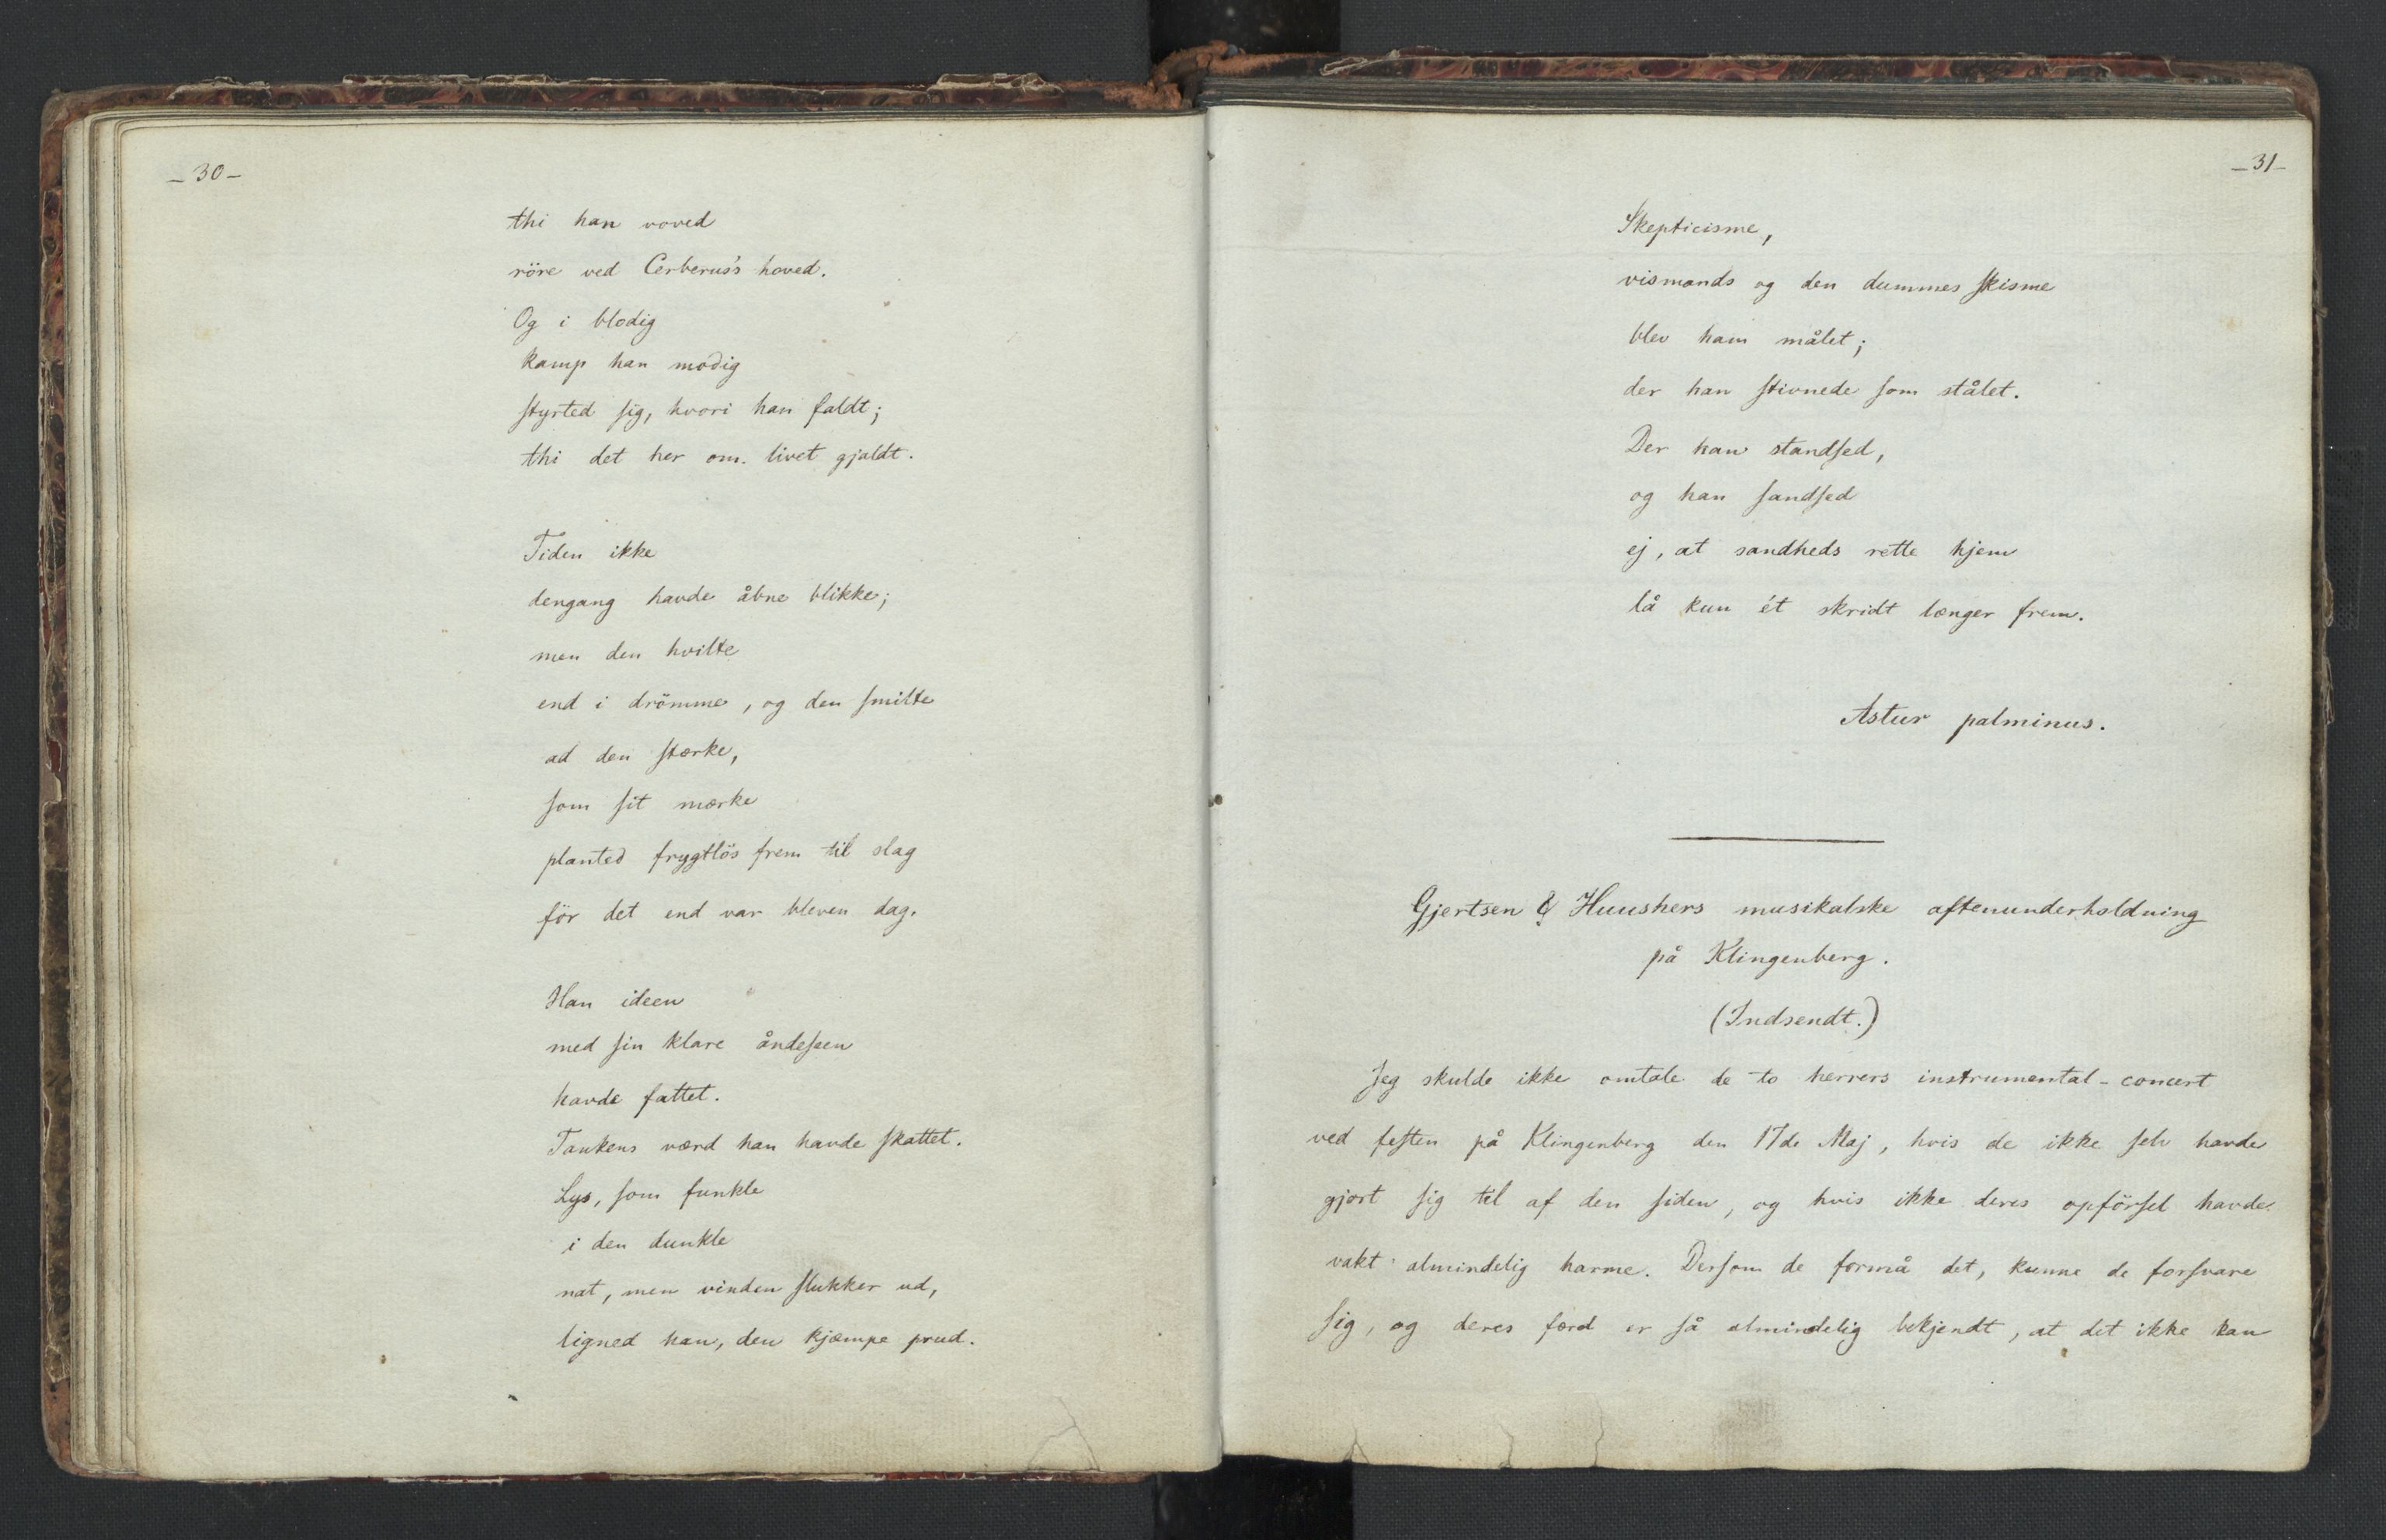 – 30 –
thi han voved
röre ved Cerberus's hoved.
Og i blodig
kamp han modig
styrted sig, hvori han faldt;
thi det her om livet gjaldt.
Tiden ikke
dengang havde åbne blikke;
men den hvilte
end i drömme, og den smilte
ad den stærke,
som sit mærke
planted frygtlös frem til slag
för det end var bleven dag.
Han ideen
med sin klare åndeseen
havde fattet.
Tankens værd han havde skattet.
Lys, som funkle
i den dunkle
nat, men vinden slukker ud,
ligned han, den kjæmpe prud.
– 31 –
Skepticisme,
vismands og den dummes skisme
blev ham målet;
der han stivnede som stålet.
Der han standsed,
og han sandsed
ej, at sandheds rette hjem
lå kun ét skridt længer frem.
Astur palminus.
Gjertsen & Huushers musikalske aftenunderholdning
på Klingenberg.
(Indsendt.)
Jeg skulde ikke omtale de to herrers instrumental-concert
ved festen på Klingenberg den 17de Maj, hvis de ikke selv havde
gjort sig til af den siden, og hvis ikke deres opförsel havde
vakt almindelig harme. Dersom de formå det, kunne de forsvare
sig, og deres færd er så almindelig bekjendt, at det ikke kan